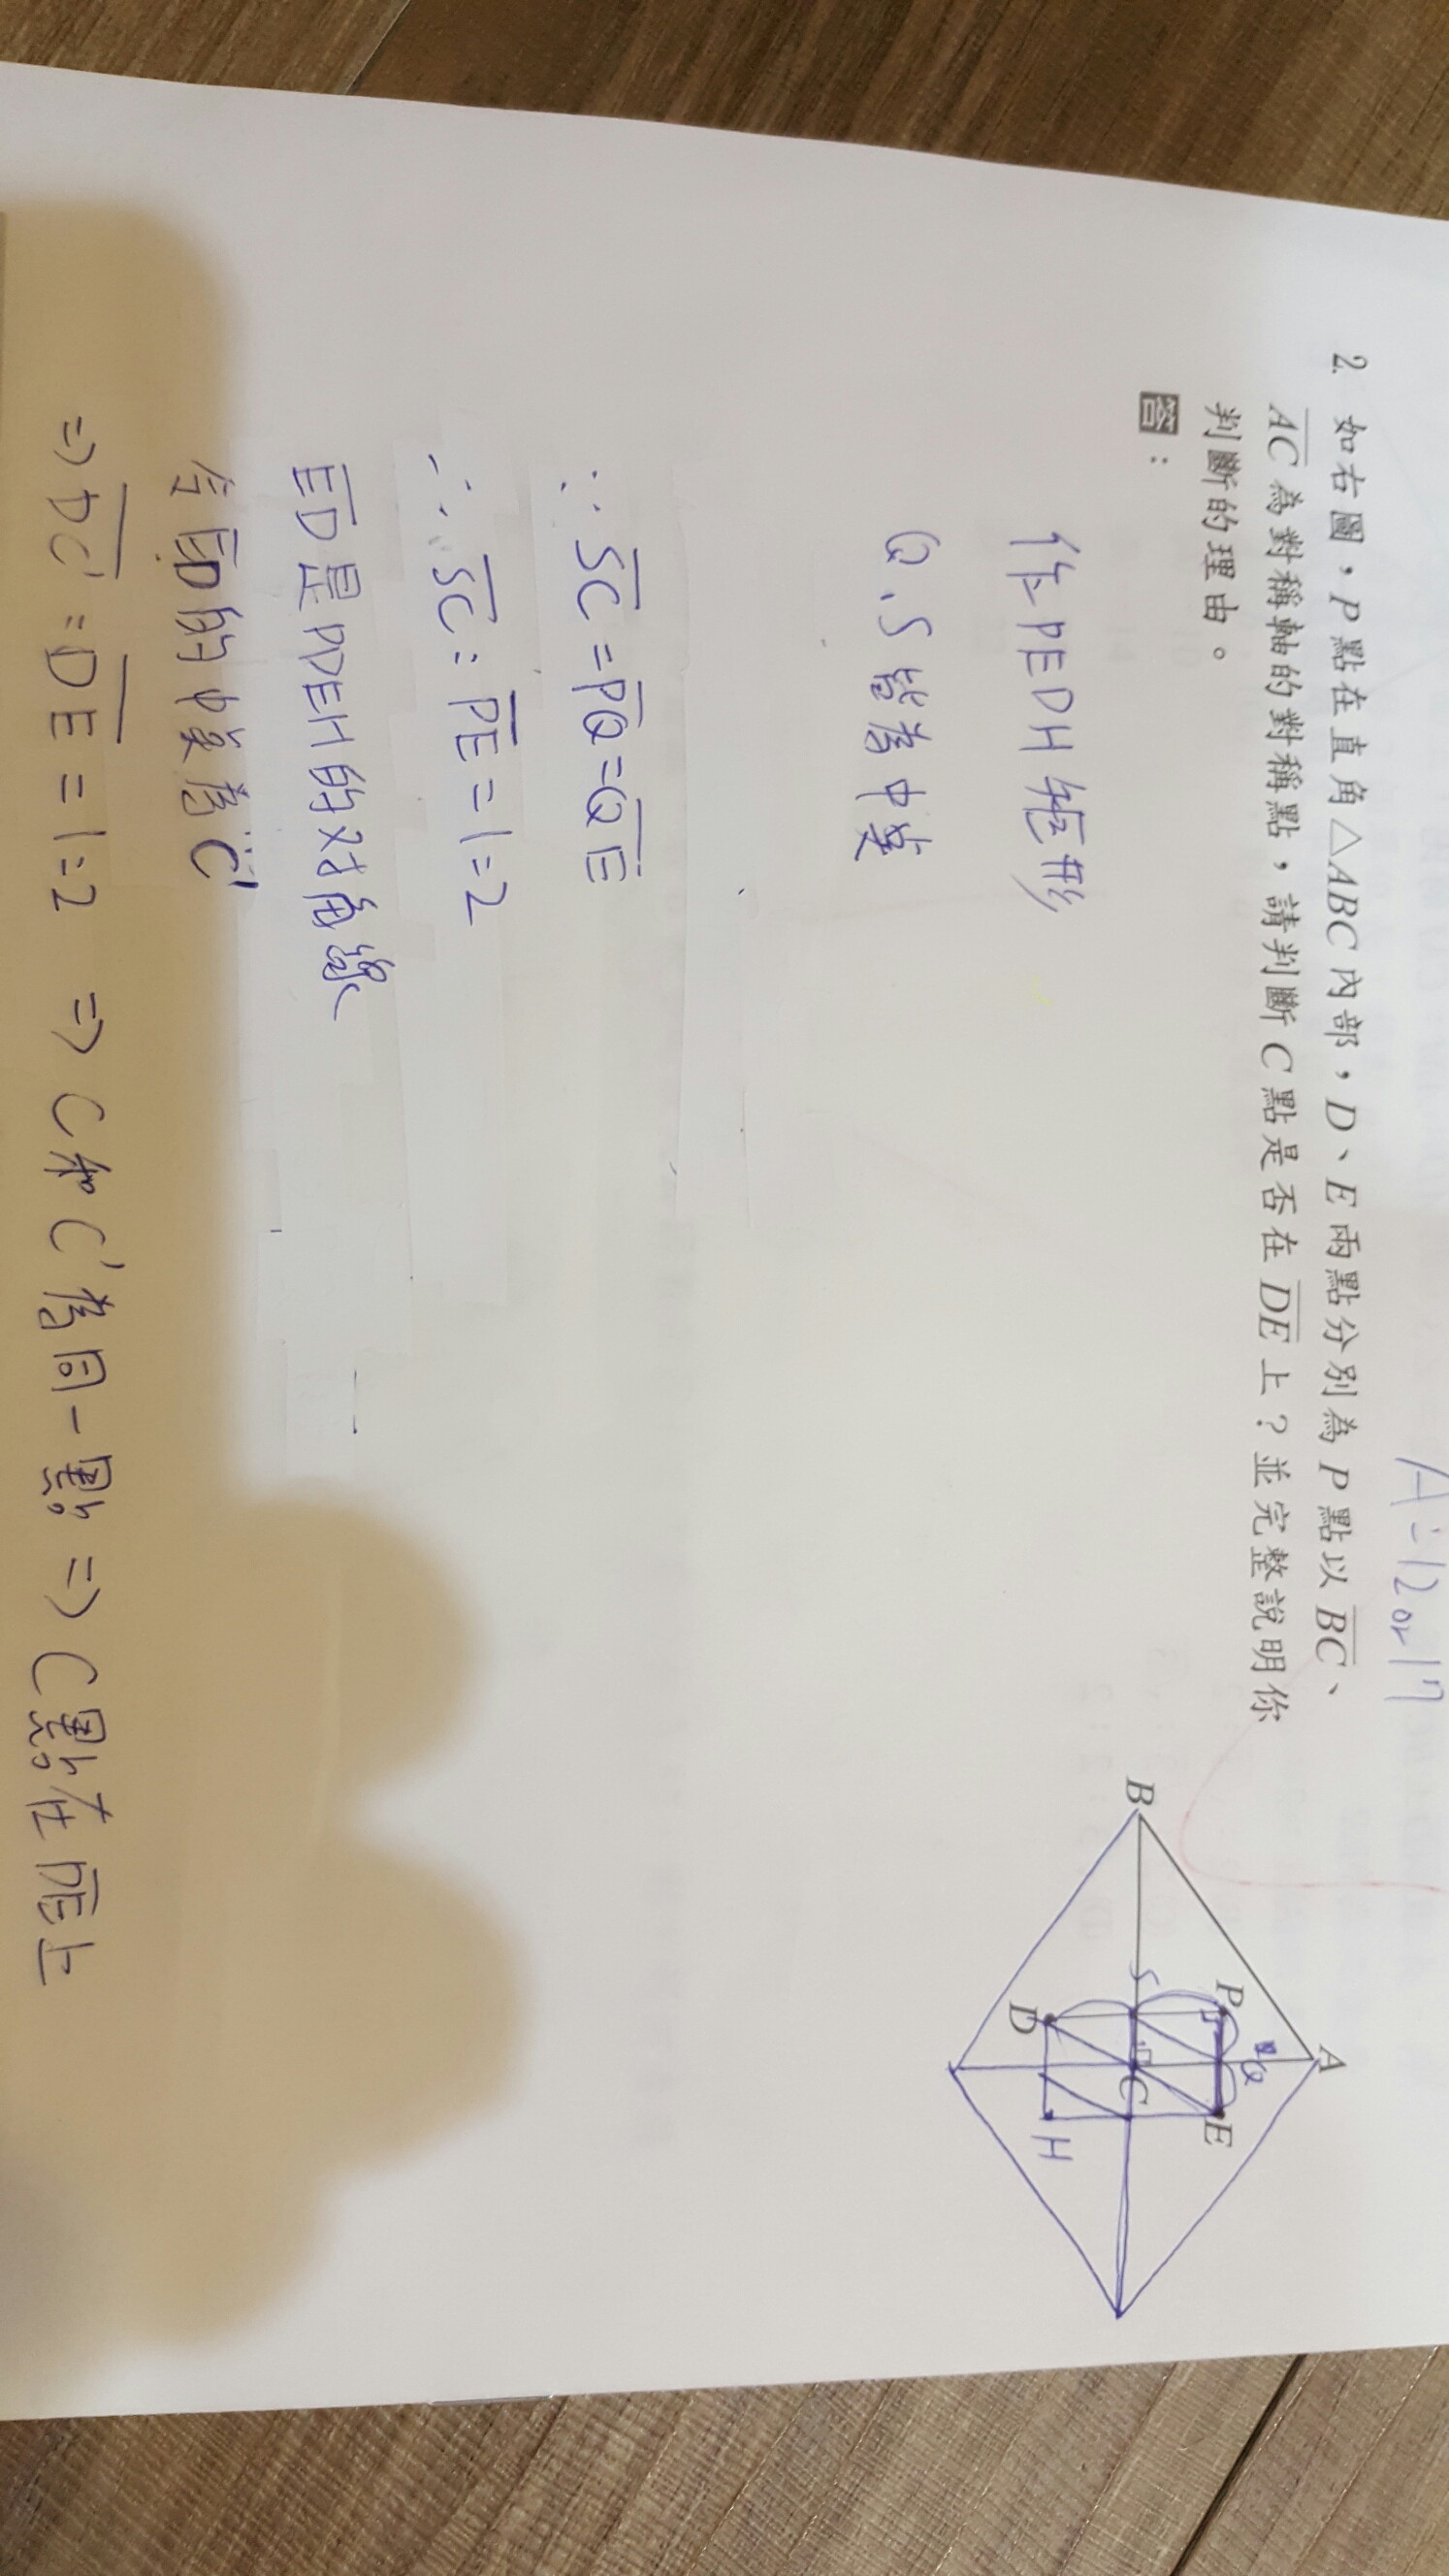 A=12or17
2. 如右圖，P點在直角△ABC內部，D、E兩點分別為P點以BC、
AC為對稱軸的對稱點，請判斷C點是否在DE上？並完整說明你
判斷的理由。
答：
B
A
P
Q
E
S
C
D
H
作PEDH矩形
Q、S皆為中點
∵SC=PQ=QE
∴SC:PE=1:2
ED是PDEH的对角線
令ED的中點為C'
⇒DC':DE=1:2 ⇒C和C'為同一點⇒C點在DE上